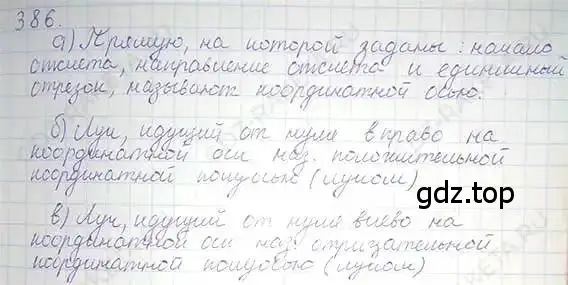 386.
а) Прямую, на которой заданы: начало
отсчета, направление отсчета и единичный
отрезок, называют координатной осью.
б) Луч, идущий от нуля вправо на
координатной оси наз. положительной
координатной полуосью (лучом)
gdz.top
в) Луч, идущий от нуля влево на
координатной оси наз. отрицательной
координатной полуосью (лучом)